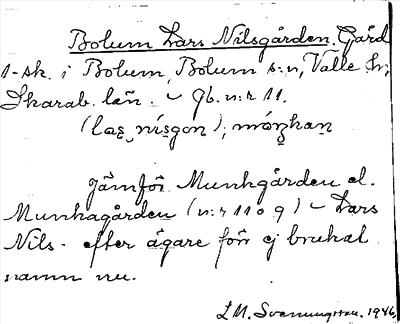 Bolum Lars Nilsgården. Gård
1-sk. i Bolum, Bolum s:n, Valle hd,
Skarab. län. – Jb. n:r 11.
(las nisgon); mónkan
Jämför Munkgården el.
Munkagården (n:r 11 o 9) – Lars
Nils- efter ägare förr ej brukat
namn nu.
L M. Svanungsson. 1946.